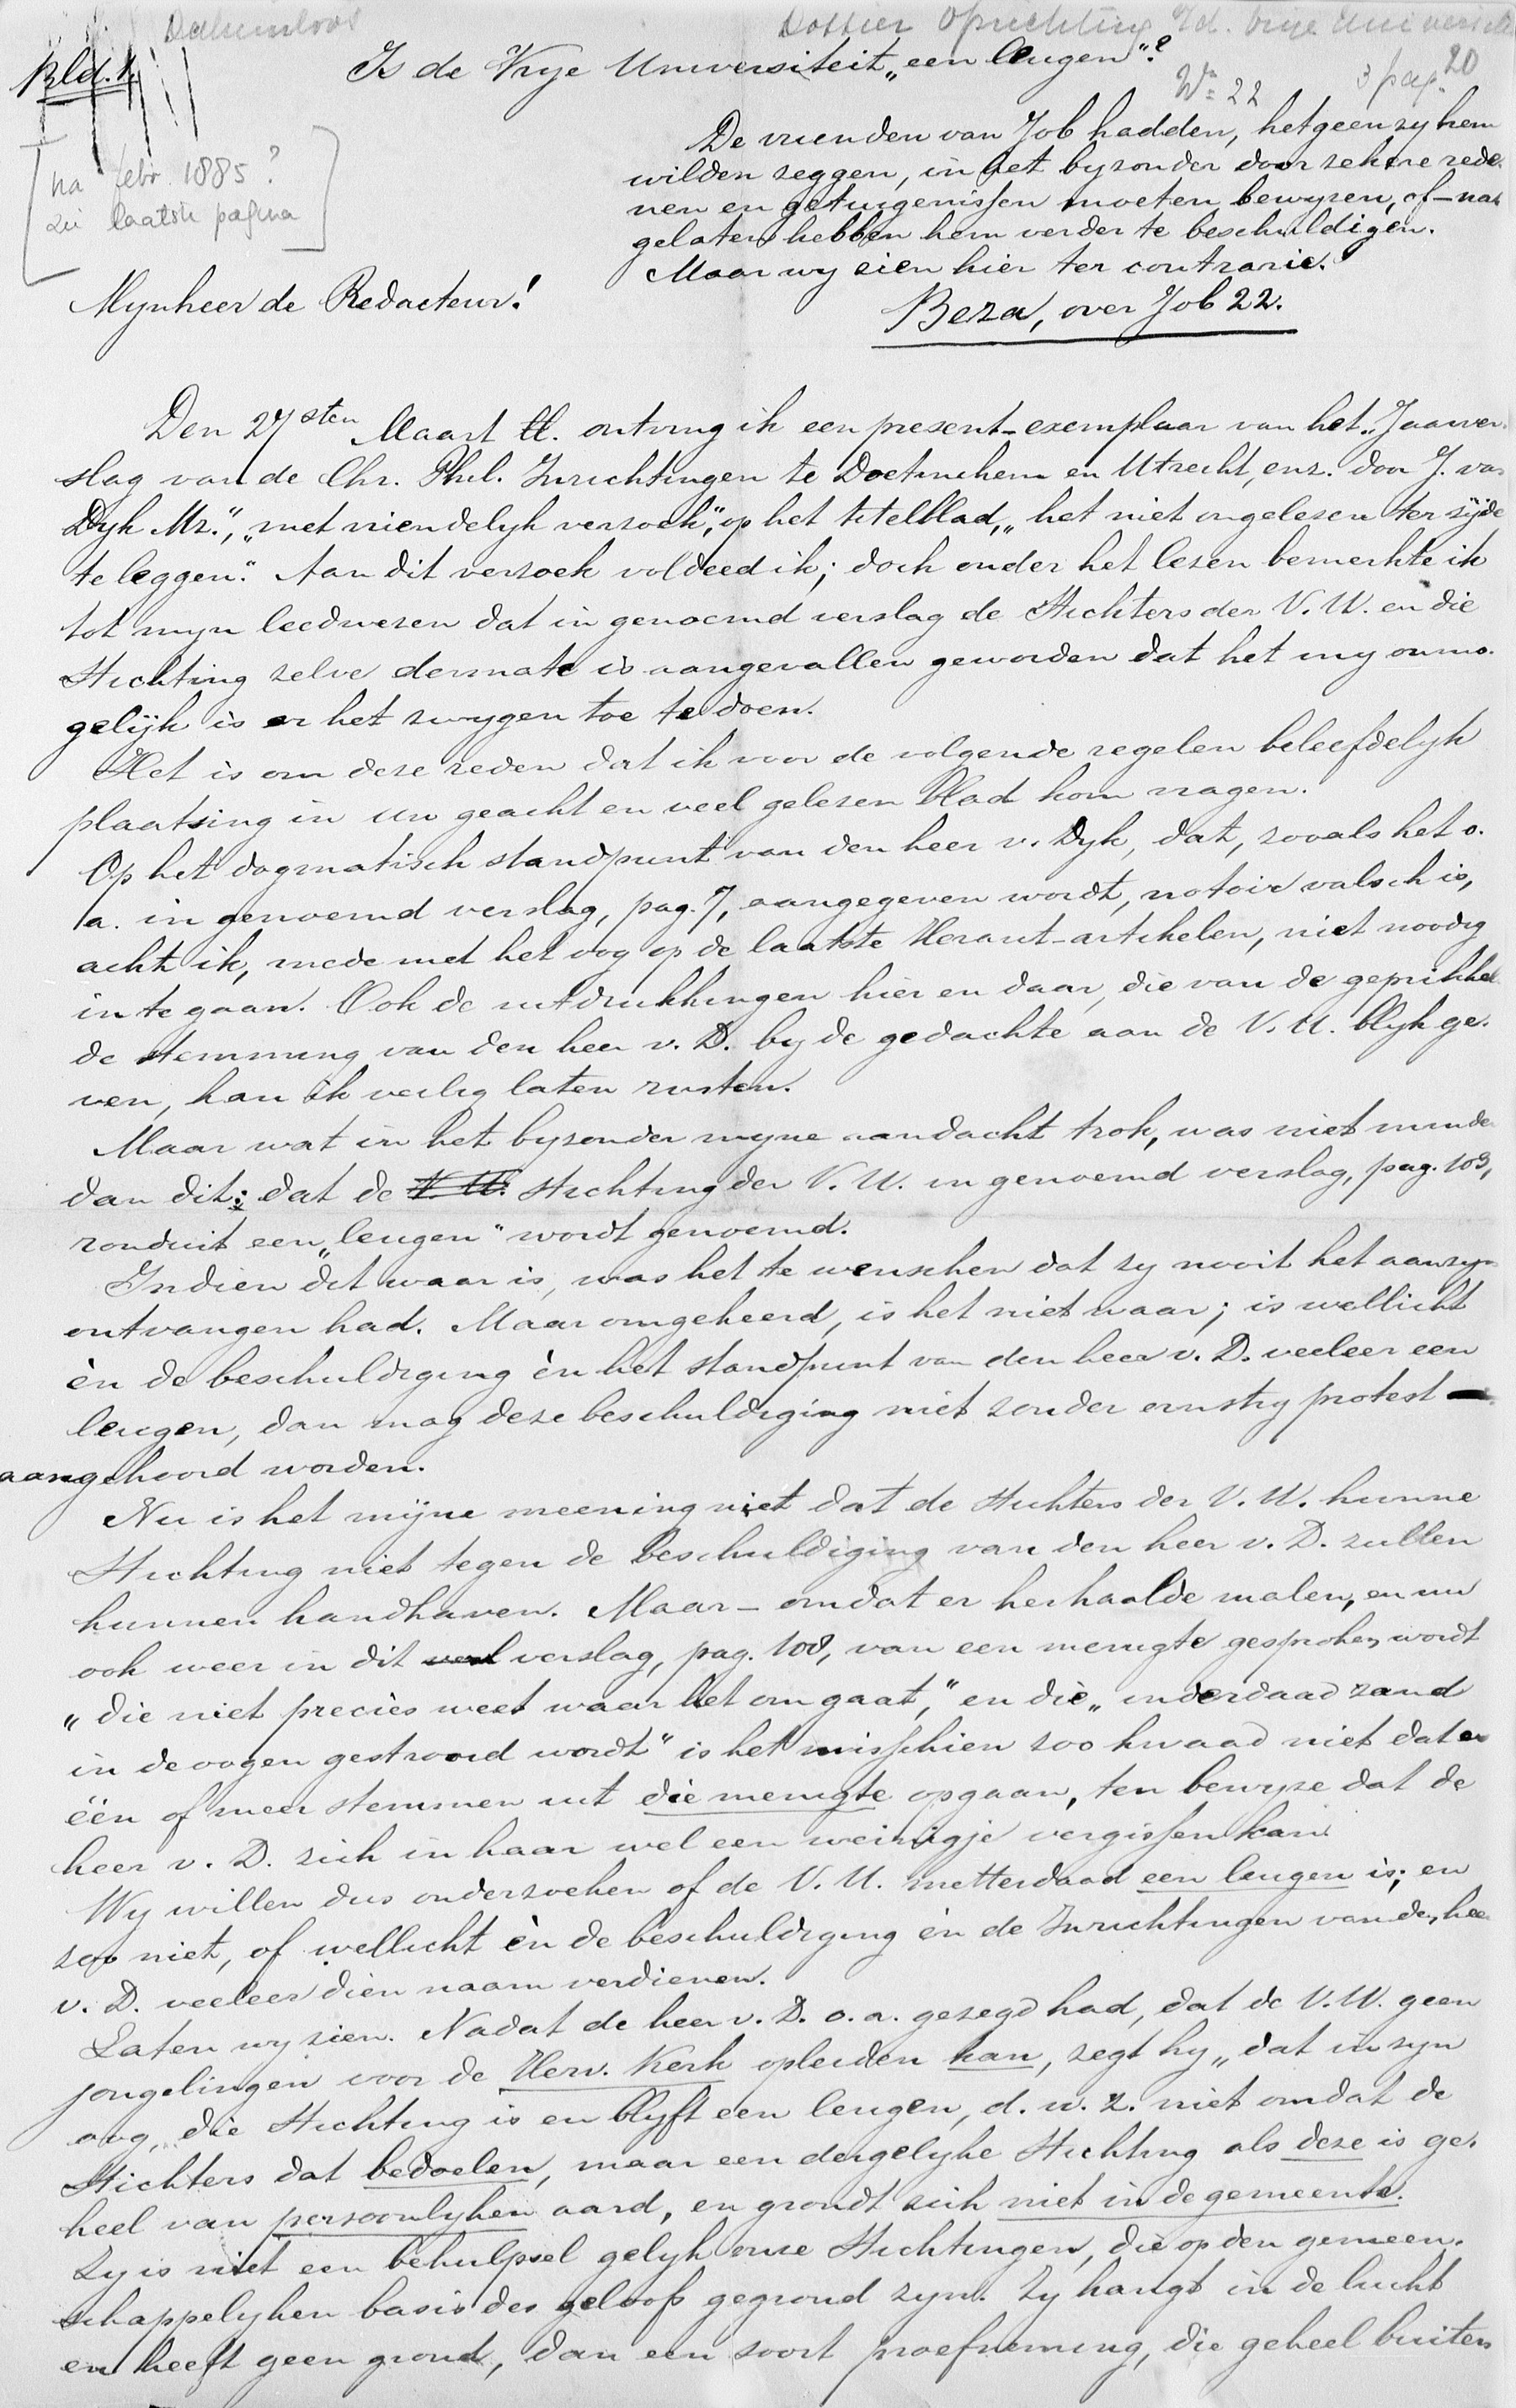 Datumloos
Dossier Oprichting Vrije Universiteit
Bld. 1.
Is de Vrye Universiteit „een leugen"?
No 22
3 pag. 20
na febr. 1885?
zie laatste pagina
De vrienden van Job hadden, hetgeen zy hem
wilden zeggen, in het byzonder door zekere rede-
nen en getuigenissen moeten bewyzen, of – na-
gelaten hebben hem verder te beschuldigen.
Maar wy zien hier ter contrarie.
Beza, over Job 22.
Mynheer de Redacteur!
Den 27sten Maart ll. ontving ik een present-exemplaar van het „Jaarver-
slag van de Chr. Phil. Inrichtingen te Doetinchem en Utrecht, enz. door J. van
Dyk Mz.", „met vriendelyk verzoek", op het titelblad, „het niet ongelezen ter zijde
te leggen." Aan dit verzoek voldeed ik; doch onder het lezen bemerkte ik
tot myn leedwezen dat in genoemd verslag de Stichters der V. U. en die
Stichting zelve dermate is aangevallen geworden dat het my onmo-
gelijk is er het zwygen toe te doen.
Het is om deze reden dat ik voor de volgende regelen beleefdelyk
plaatsing in uw geacht en veel gelezen blad kom vragen.
Op het dogmatisch standpunt van den heer v. Dyk, dat, zooals het o.
a. in genoemd verslag, pag. 7, aangegeven wordt, notoir valsch is,
acht ik, mede met het oog op de laatste Heraut-artikelen, niet noodig
in te gaan. Ook de uitdrukkingen hier en daar, die van de geprikkel-
de stemming van den heer v. D. by de gedachte aan de V. U. blyk ge-
ven, kan ik veilig laten rusten.
Maar wat in het byzonder myne aandacht trok, was niet minder
dan dit: dat de V. U. stichting der V. U. in genoemd verslag, pag. 109,
ronduit een „leugen" wordt genoemd.
Indien dit waar is, was het te wenschen dat zy nooit het aanzyn
ontvangen had. Maar omgekeerd, is het niet waar; is wellicht
èn de beschuldiging èn het standpunt van den heer v. D. veeleer een
leugen, dan mag deze beschuldiging niet zonder ernstig protest
aangehoord worden.
Nu is het mijne meening niet dat de stichters der V. U. hunne
Stichting niet tegen de beschuldiging van den heer v. D. zullen
kunnen handhaven. Maar – omdat er herhaalde malen, en nu
ook weer in dit verslag, pag. 108, van een menigte gesproken wordt
„die niet precies weet waar het om gaat," en die „inderdaad zand
in de oogen gestrooid wordt" is het misschien zoo kwaad niet dat er
één of meer stemmen uit die menigte opgaan, ten bewyze dat de
heer v. D. zich in haar wel een weinigje vergissen kan.
Wy willen dus onderzoeken of de V. U. metterdaad een leugen is; en
zoo niet, of wellicht èn de beschuldiging èn de Inrichtingen van den heer
v. D. veeleer dien naam verdienen.
Laten wy zien. Nadat de heer v. D. o. a. gezegd had, dat de V. U. geen
jongelingen voor de Herv. Kerk opleiden kan, zegt hy „dat in zyn
oog, die Stichting is en blyft een leugen, d. w. z. niet omdat de
Stichters dat bedoelen, maar een dergelyke Stichting als deze is ge-
heel van persoonlyken aard, en grondt zich niet in de gemeente.
Zy is niet een behulpsel gelyk onze Stichtingen, die op den gemeen-
schappelyken basis des geloofs gegrond zyn. Zy hangt in de lucht
en heeft geen grond, dan een soort proefneming, die geheel buiten